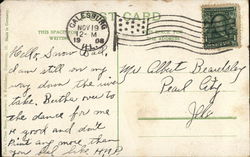 POST CARD
THIS SPACE FOR
WRITING
GALESBURG
NOV 19
12-M
1908
ILL.
Hello, Snow
Am still on my
way down the river
take. Better over to
the dance for me
& good and don't
paint any more than
you feel like
Mr Albert Beardsley
Pearl City
Ills